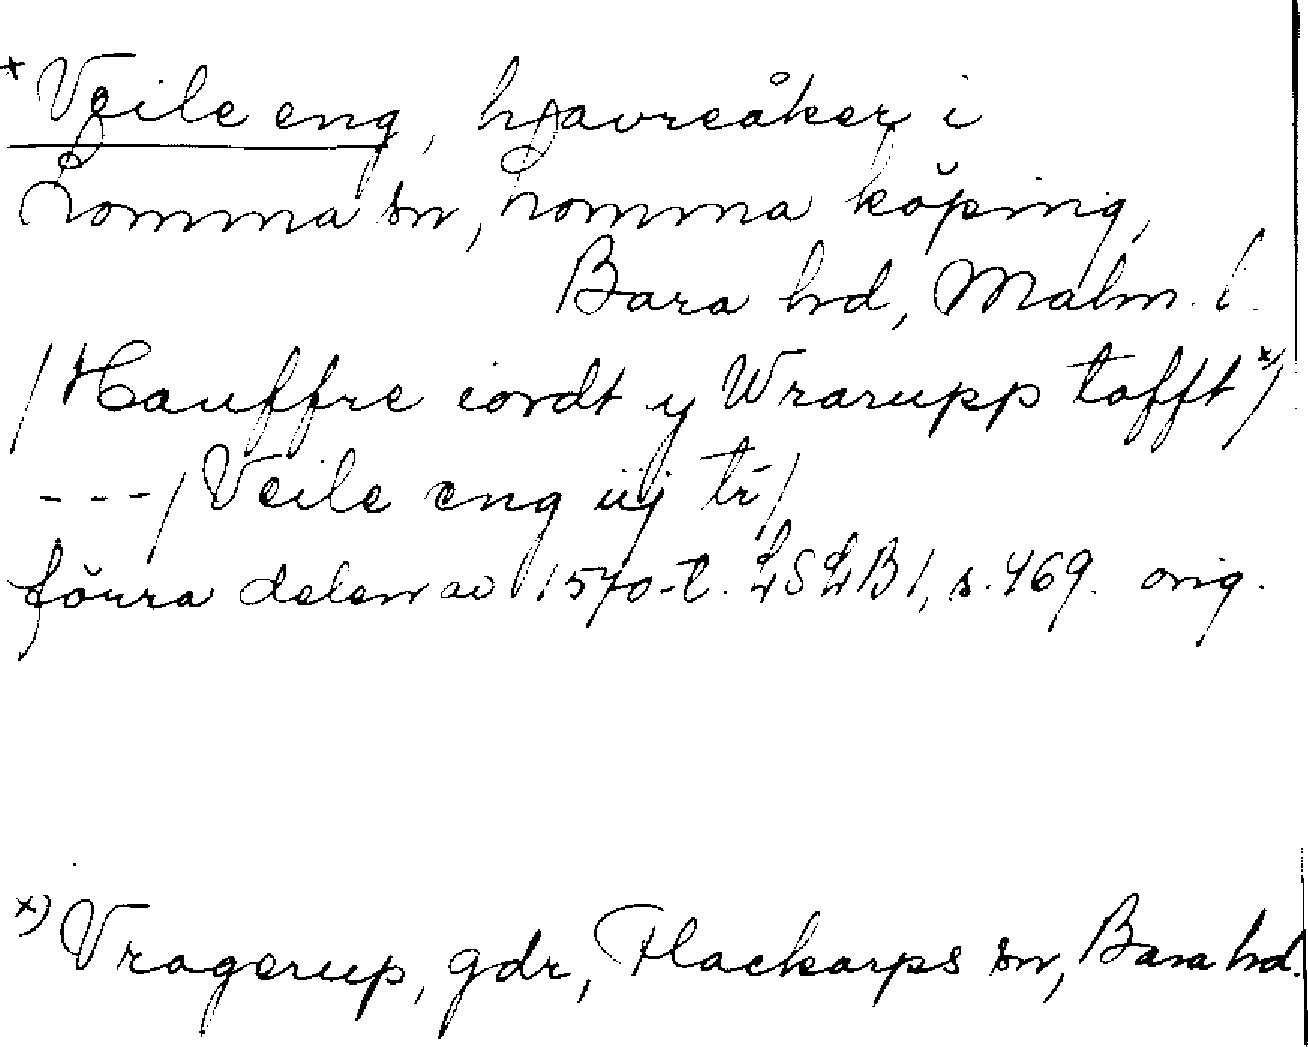 *Veile eng, havreåker i
Lomma sn, Lomma köping,
Bara hd, Malm. l.
/Hauffre iordt y Wrarupp tofft x)/
---/Veile eng iiij tr/
förra delen av 1570-t. LSLB 1, s. 469. orig.
x) Vragerup, gdr, Flackarps sn, Bara hd.